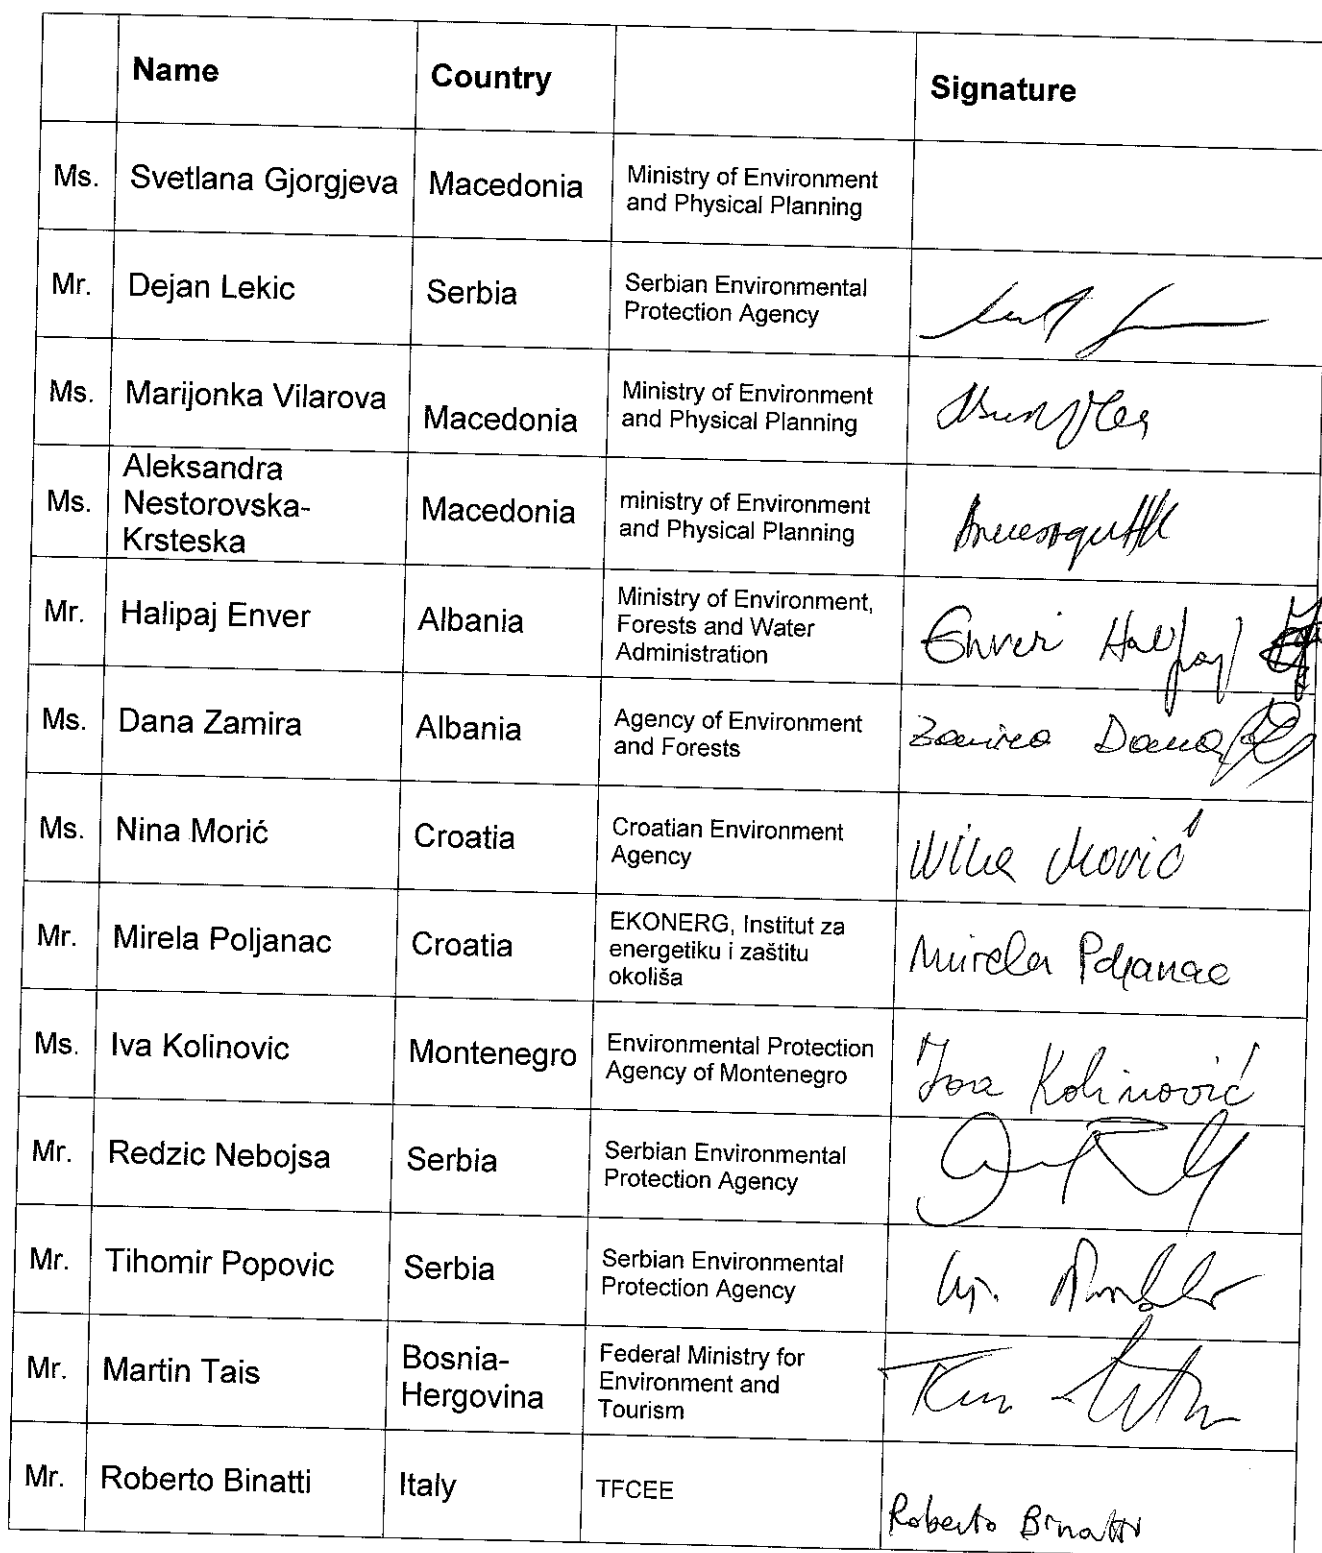 Name Country Signature
Ms. Svetlana Gjorgjeva Macedonia Ministry of Environment
and Physical Planning
Mr. Dejan Lekic Serbia Serbian Environmental
Protection Agency
Ms. Marijonka Vilarova Macedonia Ministry of Environment
and Physical Planning
Aleksandra
Ms. Nestorovska- Macedonia ministry of Environment
Krsteska and Physical Planning
Mr. Halipaj Enver Albania Ministry of Environment,
Forests and Water
Administration
Enver
Ms. Dana Zamira Albania Agency of Environment
and Forests
Zamira Dana
Ms. Nina Morić Croatia Croatian Environment
Agency
Nina Morić
Mr. Mirela Poljanac Croatia EKONERG, Institut za
energetiku i zaštitu
okoliša
Mirela Poljanac
Ms. Iva Kolinovic Montenegro Environmental Protection
Agency of Montenegro
Iva Kolinović
Mr. Redzic Nebojsa Serbia Serbian Environmental
Protection Agency
Mr. Tihomir Popovic Serbia Serbian Environmental
Protection Agency
Mr. Martin Tais Bosnia-
Hergovina
Federal Ministry for
Environment and
Tourism
Mr. Roberto Binatti Italy TFCEE
Roberto Binatti